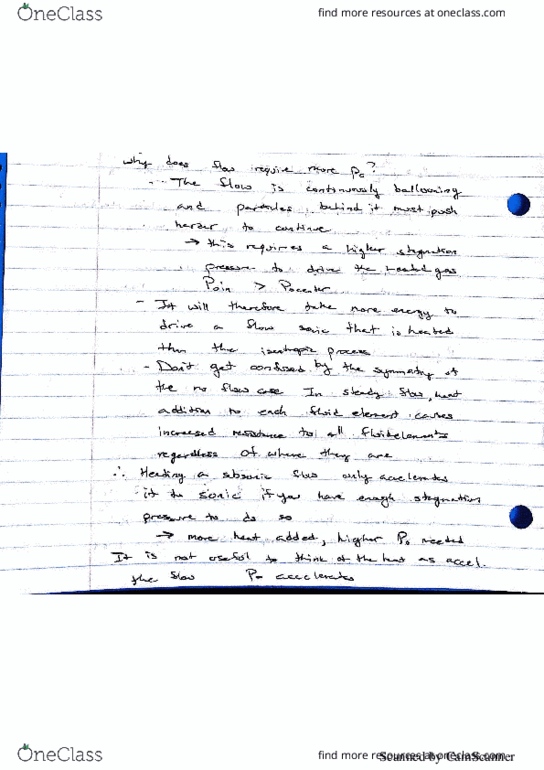 OneClass
find more resources at oneclass.com
why does flow require more Po?
- The flow is continuously ballooning
and particles behind it must push
harder to continue
→ this requires a higher stagnation
pressure to drive the heated gas
Poin > Pocenter
- It will therefore take more energy to
drive a flow sonic that is heated
than the isentropic process
- Don't get confused by the symmetry of
the no flow case In steady flow, heat
addition to each fluid element causes
increased resistance to all fluid elements
regardless of where they are
∴ Heating a subsonic flow only accelerates
it to sonic if you have enough stagnation
pressure to do so
→ more heat added, higher Po needed
It is not useful to think of the heat as accel.
the flow Po accelerates
OneClass
find more resources at oneclass.com
Scanned by CamScanner